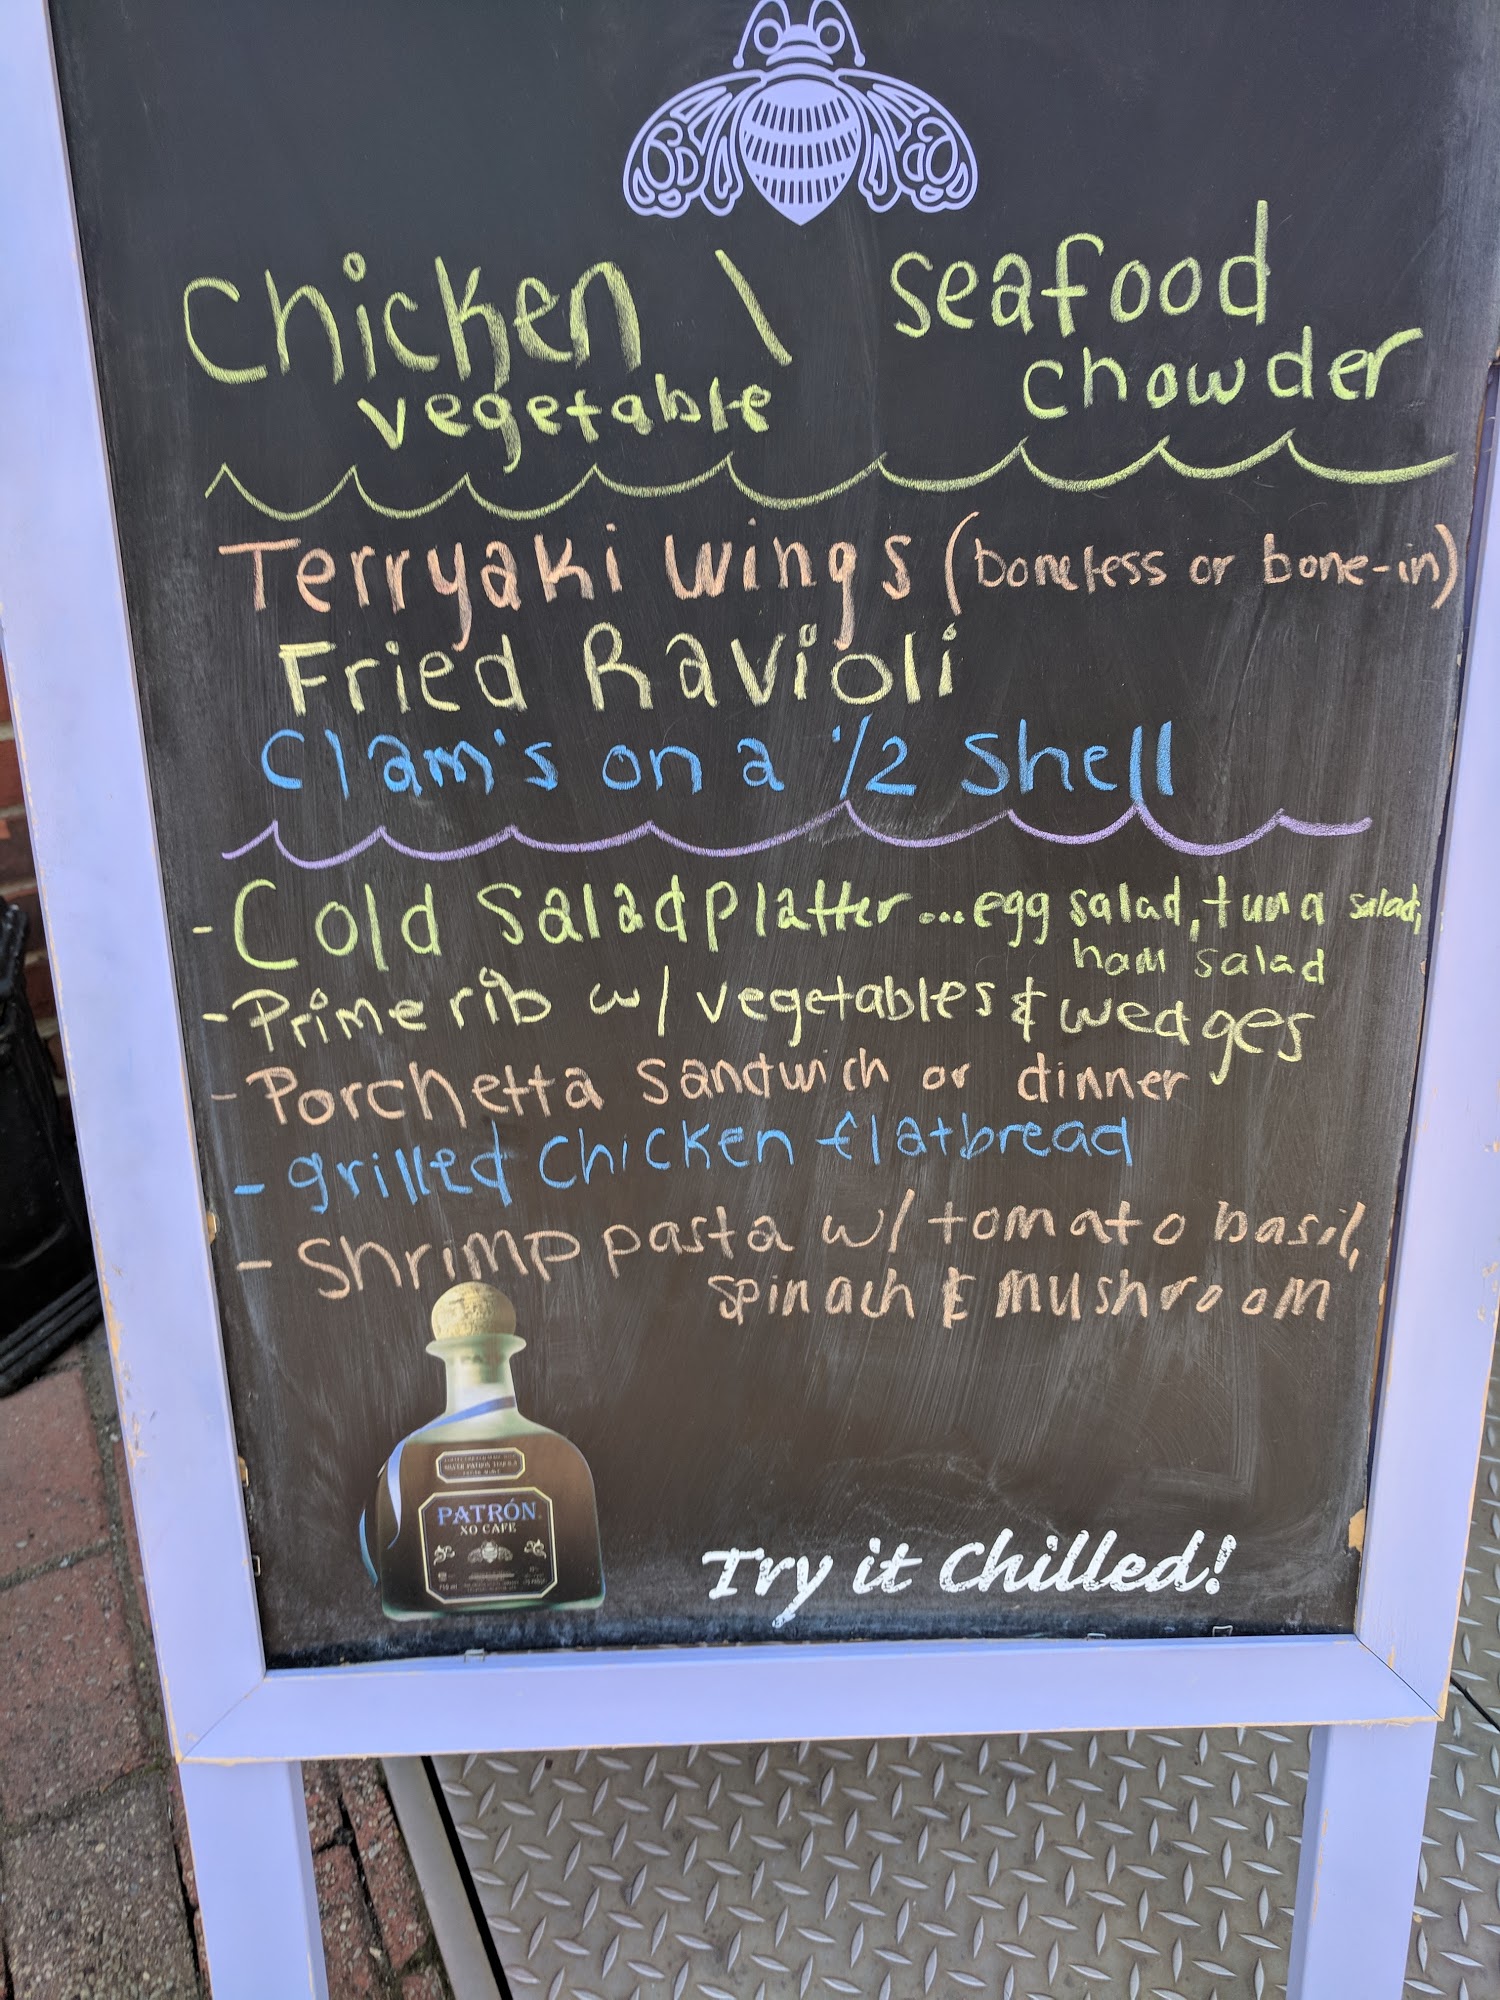 Chicken \ seafood
vegetable chowder
Terryaki wings (boneless or bone-in)
Fried Ravioli
Clam's on a 1/2 shell
- Cold Salad platter...egg salad, tuna salad,
ham salad
- Prime rib w/ vegetables & wedges
- Porchetta sandwich or dinner
- grilled Chicken flatbread
- Shrimp pasta w/ tomato basil,
spinach & mushroom
SILVER PATRON TEQUILA
PATRÓN
XO CAFE
Try it Chilled!